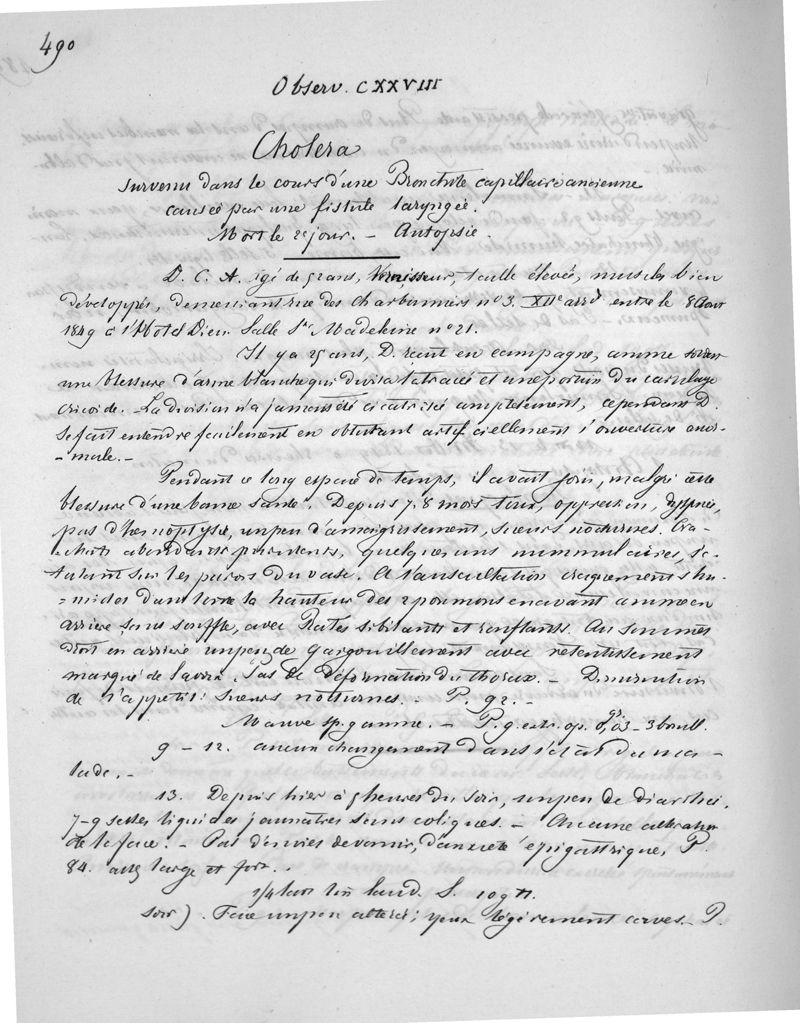 490
Observ. CXXVIII
Cholera
survenu dans le cours d'une Bronchite capillaire ancienne
causée par une fistule laryngée.
Mort le 2e jour. – Autopsie.
D. C. A. agé de 59 ans, Vernisseur, taille élevée, muscles bien
développés, demeurant rue des Charbonniers no 3. XIIe arrt entre le 8 Aout
1849 à l'Hotel Dieu Salle Ste Madeleine no 21.
Il y a 25 ans, D. reçut en campagne, comme soldat
une blessure d'arme blanche qui divisa la trachée et une portion du cartilage
cricoide. La division n'a jamais été cicatrisée complètement, cependant D.
se fait entendre facilement en obturant artificiellement l'ouverture anor-
– male. –
Pendant ce long espace de temps, il avait joui, malgré cette
blessure d'une bonne santé. Depuis 7. 8 mois toux, oppression, dyspnée,
pas d'hemoptysie, un peu d'amaigrissement, sueurs nocturnes. Cra-
– chats abondants purulents, quelques uns nummulaires, s'é-
talant sur les parois du vase. A l'auscultation craquements hu-
= mides dans toute la hauteur des 2 poumons en avant comme en
arrière sans souffle, avec Rales sibilants et ronflants. Au sommet
droit en arrière un peu de gargouillement avec retentissement
marqué de la voix. Pas de déformation du thorax. – Diminution
de l'appetit: sueurs nocturnes. – P. 92. –
Mauve sp. gomme. – P. g. extr. op. 0,gr 03 – 3 bouill.
9 – 12. aucun changement dans l'état du ma-
lade. –
13. Depuis hier à 5 heures du soir, un peu de diarrhée.
7–9 selles liquides jaunatres sans coliques. – Aucune altération
de la face. – Pas d'envies de vomir, d'anxiété épigastrique, P.
84. assez large et fort.
1/4 lav. lin laud. S. 10 gtt.
soir) . Face un peu altérée; yeux légèrement cavés. – P.